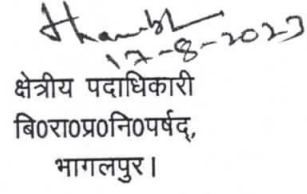 17-8-2023
क्षेत्रीय पदाधिकारी
बि०रा०प्र०नि०पर्षद्,
भागलपुर।